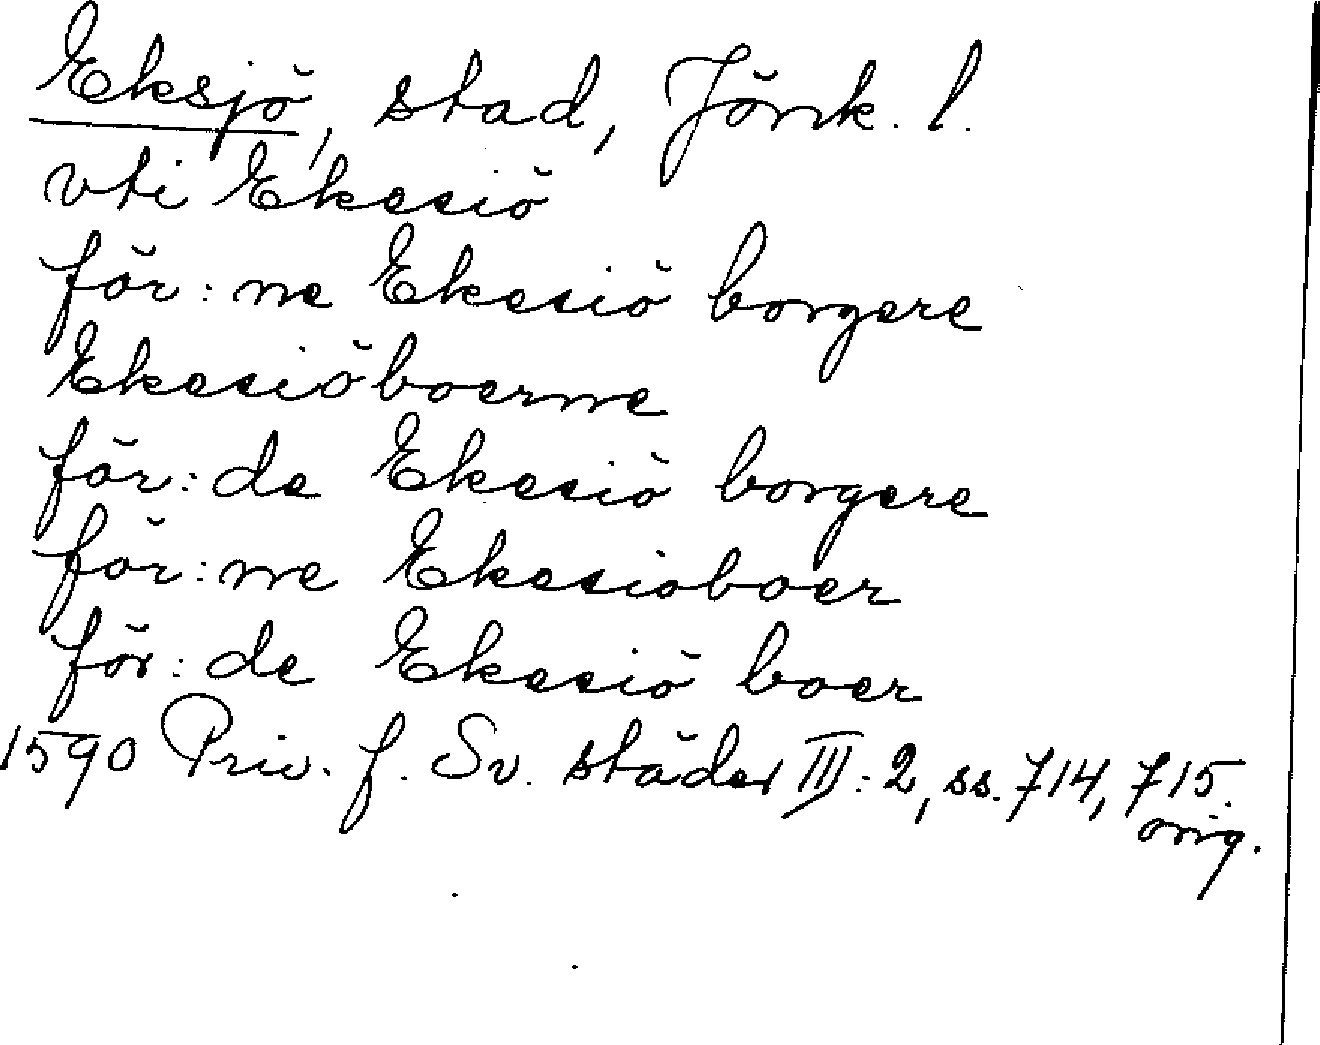 Eksjö, stad, Jönk. l.
vti Ekesiö
för: ne Ekesiö borgere
Ekesiöboerne
för: de Ekesiö borgere
för: ne Ekesiöboer
för: de Ekesiö boer
1590 Priv. f. Sv. städer III: 2, ss. 714, 715.
orig.